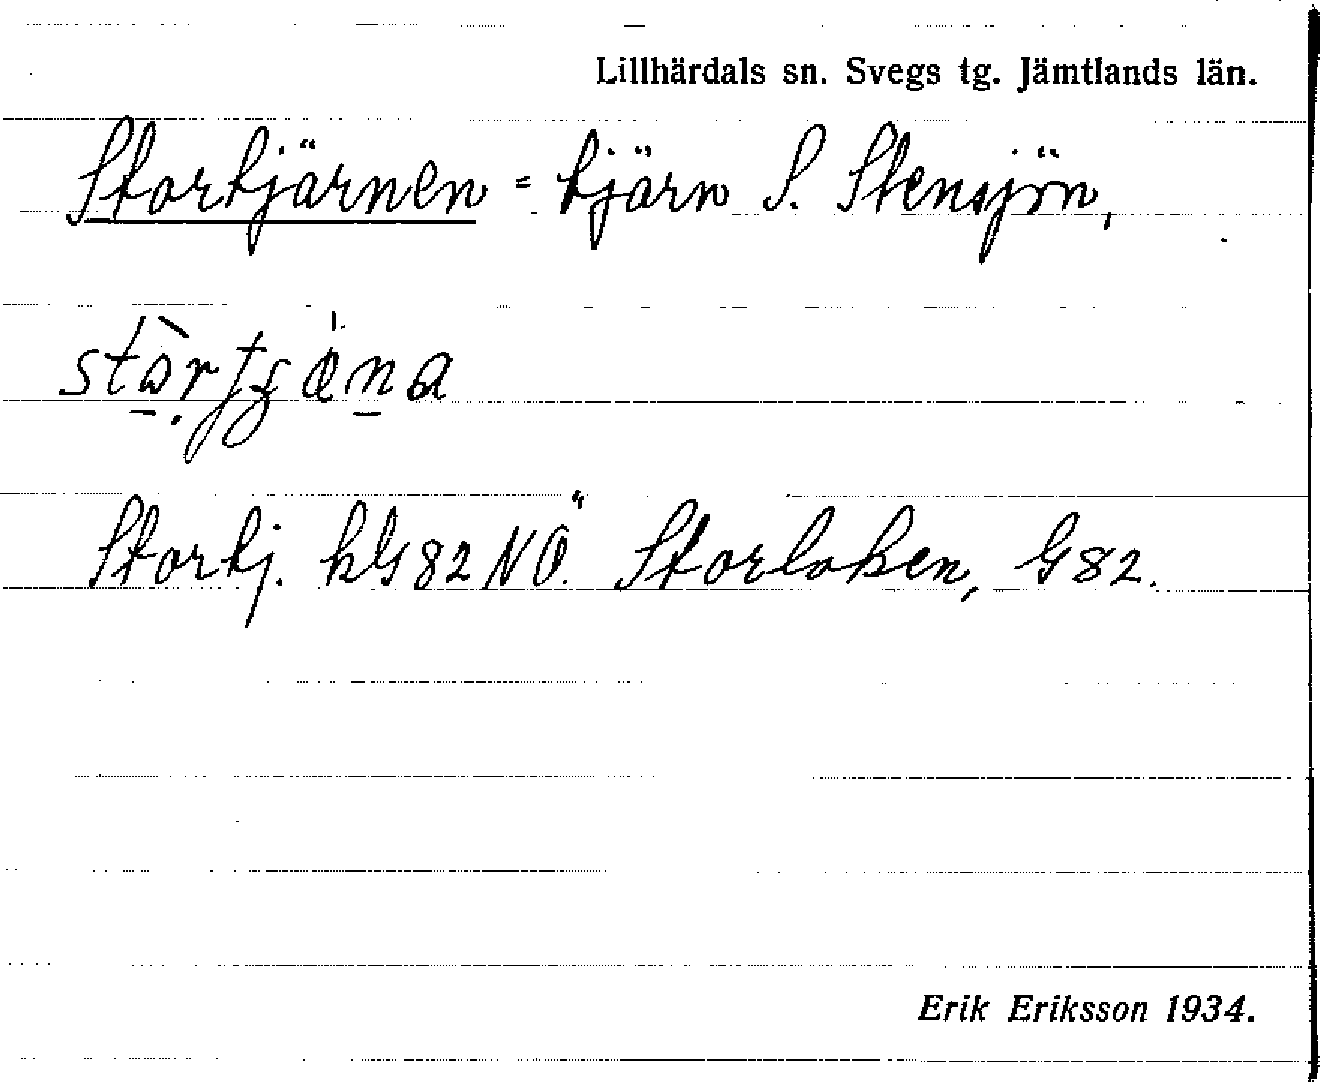 Lillhärdals sn. Svegs tg. Jämtlands län.
Stortjärnen = tjärn S. Stensjön,
Stortj. kG82NÖ. Storloken, G82.
Erik Eriksson 1934.